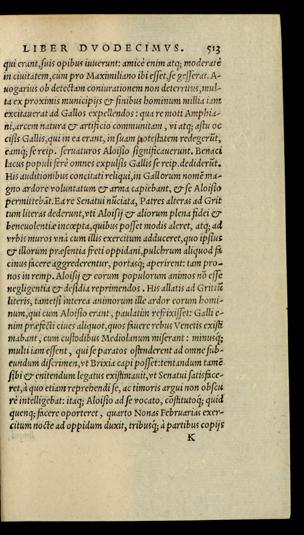 LIBER DVODECIMVS. 513
qui erant, suis opibus iuuerunt: amicè enim atq; moderatè
in ciuitatem, cum pro Maximiliano ibi esset, se gesserat. A-
uogarius ob detectam coniurationem non deterritus, mul-
ta ex proximis municipijs & finibus hominum millia iam
excitauerat ad Gallos expellendos: qua re moti Amphia-
ni, arcem natura & artificio communitam, vi atq; astu oc
cisis Gallis, qui in ea erant, in suam potestatem redegerūt,
eamq; se reip. seruaturos Aloisio significauerunt. Benaci
lacus populi ferè omnes expulsis Gallis se reip. dediderūt.
His auditionibus concitati reliqui, in Gallorum nomē ma-
gno ardore voluntatum & arma capiebant, & se Aloisio
permittebāt. Ea re Senatui nūciata, Patres alteras ad Grit
tum literas dederunt, vti Aloisij & aliorum plena fidei &
beneuolentiæ incœpta, quibus posset modis aleret, atq; ad
vrbis muros vnà cum illis exercitum adduceret, quo ipsius
& illorum præsentia freti oppidani, pulchrum aliquod fa
cinus facere aggrederentur, portasq; aperirent: tam pro-
nos in remp. Aloisij & eorum populorum animos nō esse
negligentia & desidia reprimendos. His allatis ad Grittū
literis, tametsi interea animorum ille ardor eorum homi-
num, qui cum Aloisio erant, paulatim refrixisset: Galli e-
nim præfecti ciues aliquot, quos fauere rebus Venetis existi
mabant, cum custodibus Mediolanum miserant: minusq;
multi iam essent, qui se paratos ostenderent ad omne sub-
eundum discrimen, vt Brixia capi posset: tentandum tamē
sibi & enitendum legatus existimauit, vt Senatui satisface-
ret, à quo etiam reprehendi se, ac timoris argui non obscu
rè intelligebat: itaq; Aloisio ad se vocato, cōstitutoq; quid
quenq; facere oporteret, quarto Nonas Februarias exer-
citum nocte ad oppidum duxit, tribusq; à partibus copijs
K